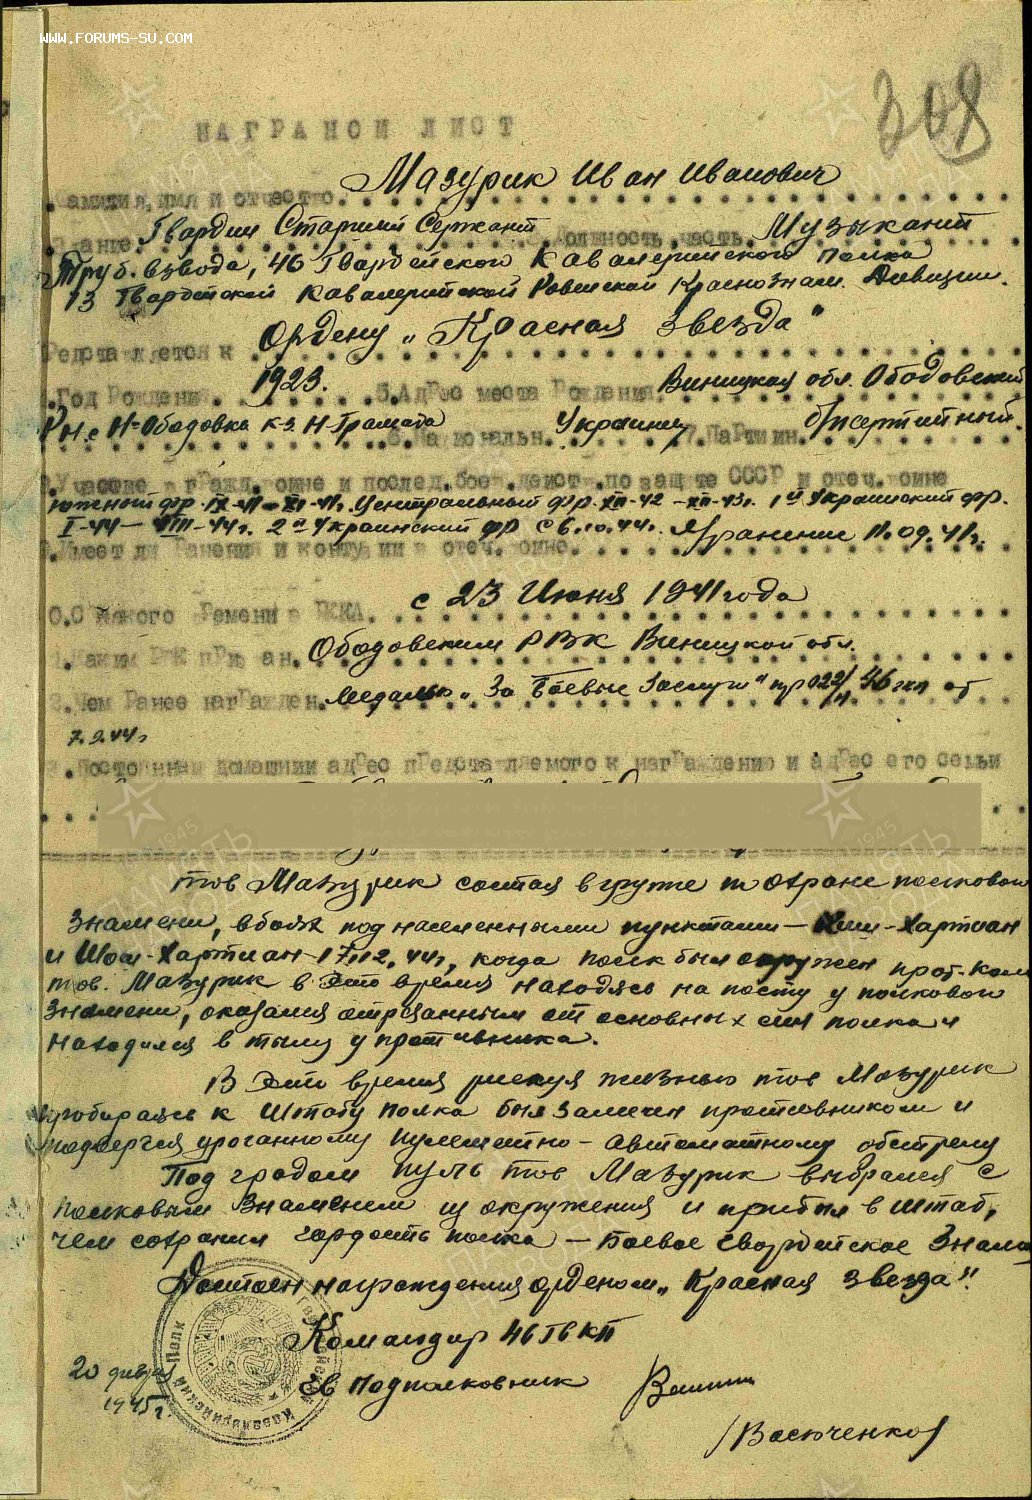 WWW.FORUMS-SU.COM
308
НАГРАНОИ ЛИСТ
Фамилия, имя и отчество. Мазурик Иван Иванович
Звание. Гвардии Старший Сержант Должность, часть. Музыкант
Труб. взвода, 46 Гвардейского Кавалерийского полка
13 Гвардейской Кавалерийской Ровенской Краснознам. Дивизии.
Ордену „Красная звезда"
Представляется к
.Год Рождения. 1923. 5.Адрес места Рождения. Виницкая обл. Ободовский
Рн. с Н-Ободовка к-з Н-Громада 6.Национальн. Украинец 7.Партийн. безпартийный.
8.Участие в гражд. войне и послед. боев. дейст. по защите СССР и отеч. войне
Южный фр. IX-41-XI-41г. Центральный фр. XII-42-XII-43г. 1й Украинский фр.
I-44- VIII-44г. 2й Украинский фр с 6.10.44г. Ранение 11.09.41г.
9.Имеет ли Ранения и контузии в отеч. войне.
О.С какого времени в РККА. с 23 Июня 1941 года
1.Каким РВК призван. Ободовским РВК Виницкой обл.
2.Чем Ранее награжден. Медалью „За Боевые Заслуги" пр 022/н 46 гкп от
7.9.44г
.Постоянный домашний адрес представляемого к награждению и адрес его семьи
тов Мазурик состоя в группе по охране полкового
знамени, в боях под населенными пунктами - -Хартиан
и Шом-Хартиан 17.12.44г, когда полк был окружен прот-ком
тов. Мазурик в это время находясь на посту у полкового
знамени, оказался отрезанным от основных сил полка и
находился в тылу у противника.
В это время рискуя жизнью тов Мазурик
пробираясь к Штабу полка был замечен противником и
подвергся ураганному пулеметно-автоматному обстрелу
Под градом пуль тов Мазурик выбрался с
полковым знаменем из окружения и прибыл в штаб,
чем сохранил гордость полка - Боевое Гвардейское Знамя
Достоен награждения орденом „Красная звезда"
Командир 46 ГвКП
Гв Подполковник
20 февраля
1945г.
/Васюченко/